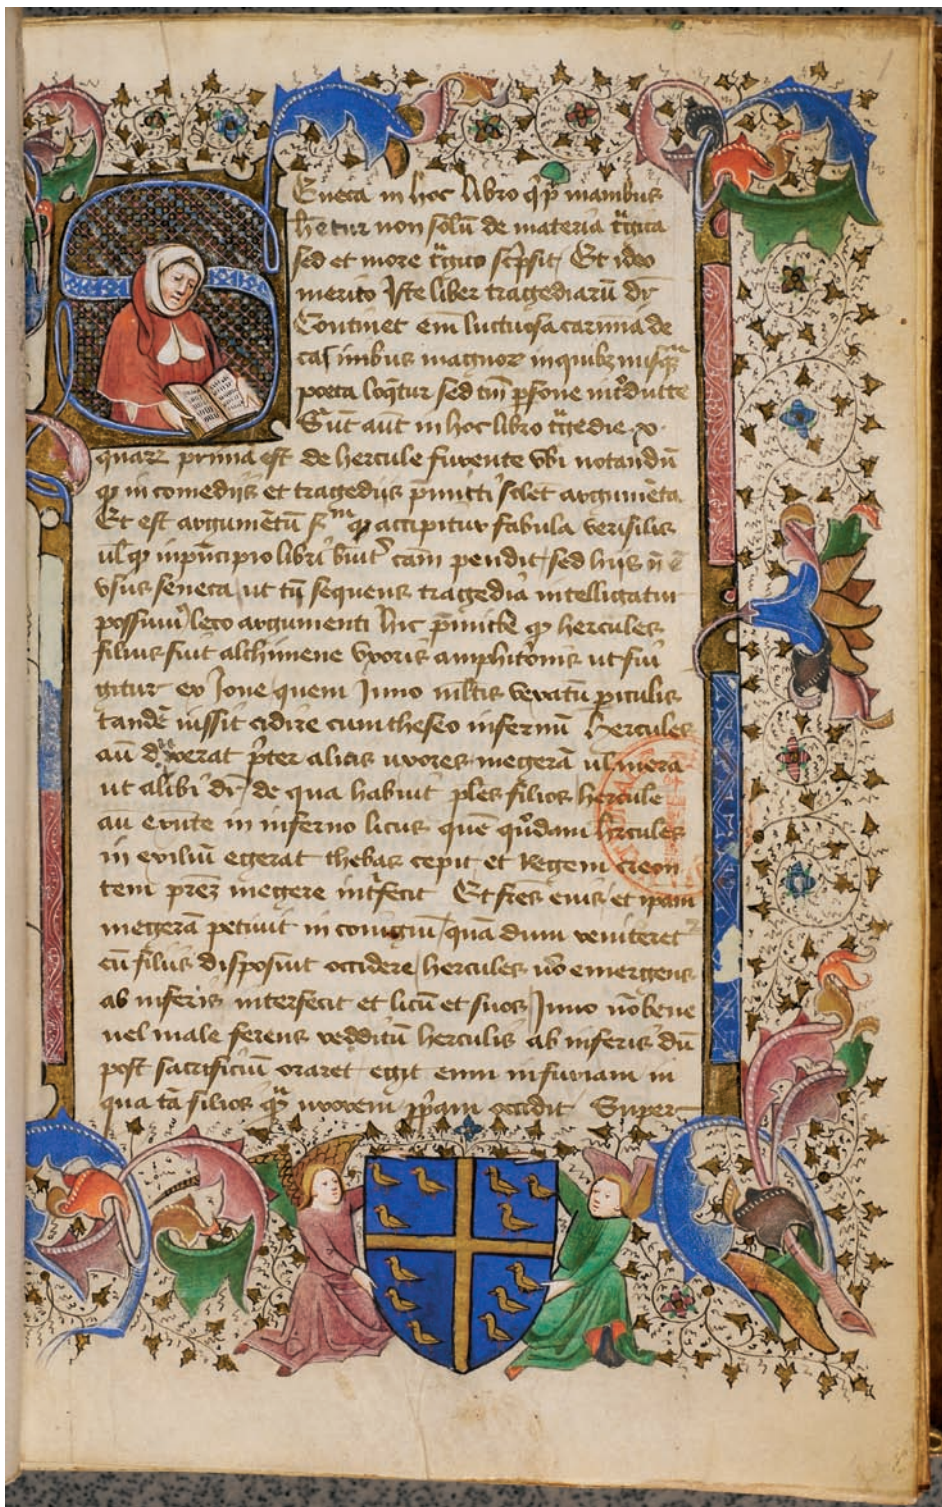 Seneca in hoc libro q̄ p̄ manibus
hr̄tur non solū de materia t̄gica
sed et more t̄gico sc̄psit / Et ideo
merito Iste liber tragediarū dr̄
Continet em̄ luctuosa carmina de
casibus magnoꝝ in quibꝫ nusq̄
poeta loq̄tur sed tm̄ p̄sone int°ducte
Sūt aūt in hoc libro t̄gedie .x.
quaꝝ prima est de hercule furente vbi notandū
ꝙ in comedijs et tragedijs p̄mitti solet argumēta
Et est argumētū ꝙ accipitur fabula verisilis
ul̓ ꝙ in p̄ncipio libri cām pendit / sed hijs
vsus seneca ut tn̄ sequens tragedia intelligatur
possum loco argumenti hic p̄mitte ꝙ hercules
filius fuit alchimene vxoris amphitōnis ut fin
gitur ex Ioue quem Iuno ml̄tis vexatū piculis
tandē iussit cū theseo infernū hercules
aū duxerat p̄ter alias uxores megerā ul̓ mera
ut alibi dr̄ de qua habuit ples filios hercule
aū exn̄te in inferno licus quē q°dam hercules
in exiliū egerat thebas cepit et Regem creon
tem prēꝫ megere int̄fecit Et frēs eius et ipam
megerā petiuit in coniugiū / quā dum reniteret
cū filijs disposuit occidere / hercules uō emergens
ab inferis interfecit et licū et suos / Iuno nō bene
uel male ferens redditū herculis ab inferis dū
post sacrificiū oraret egit eum in furiam in
qua tā filios q̄ uxorem p̄pam occidit Super